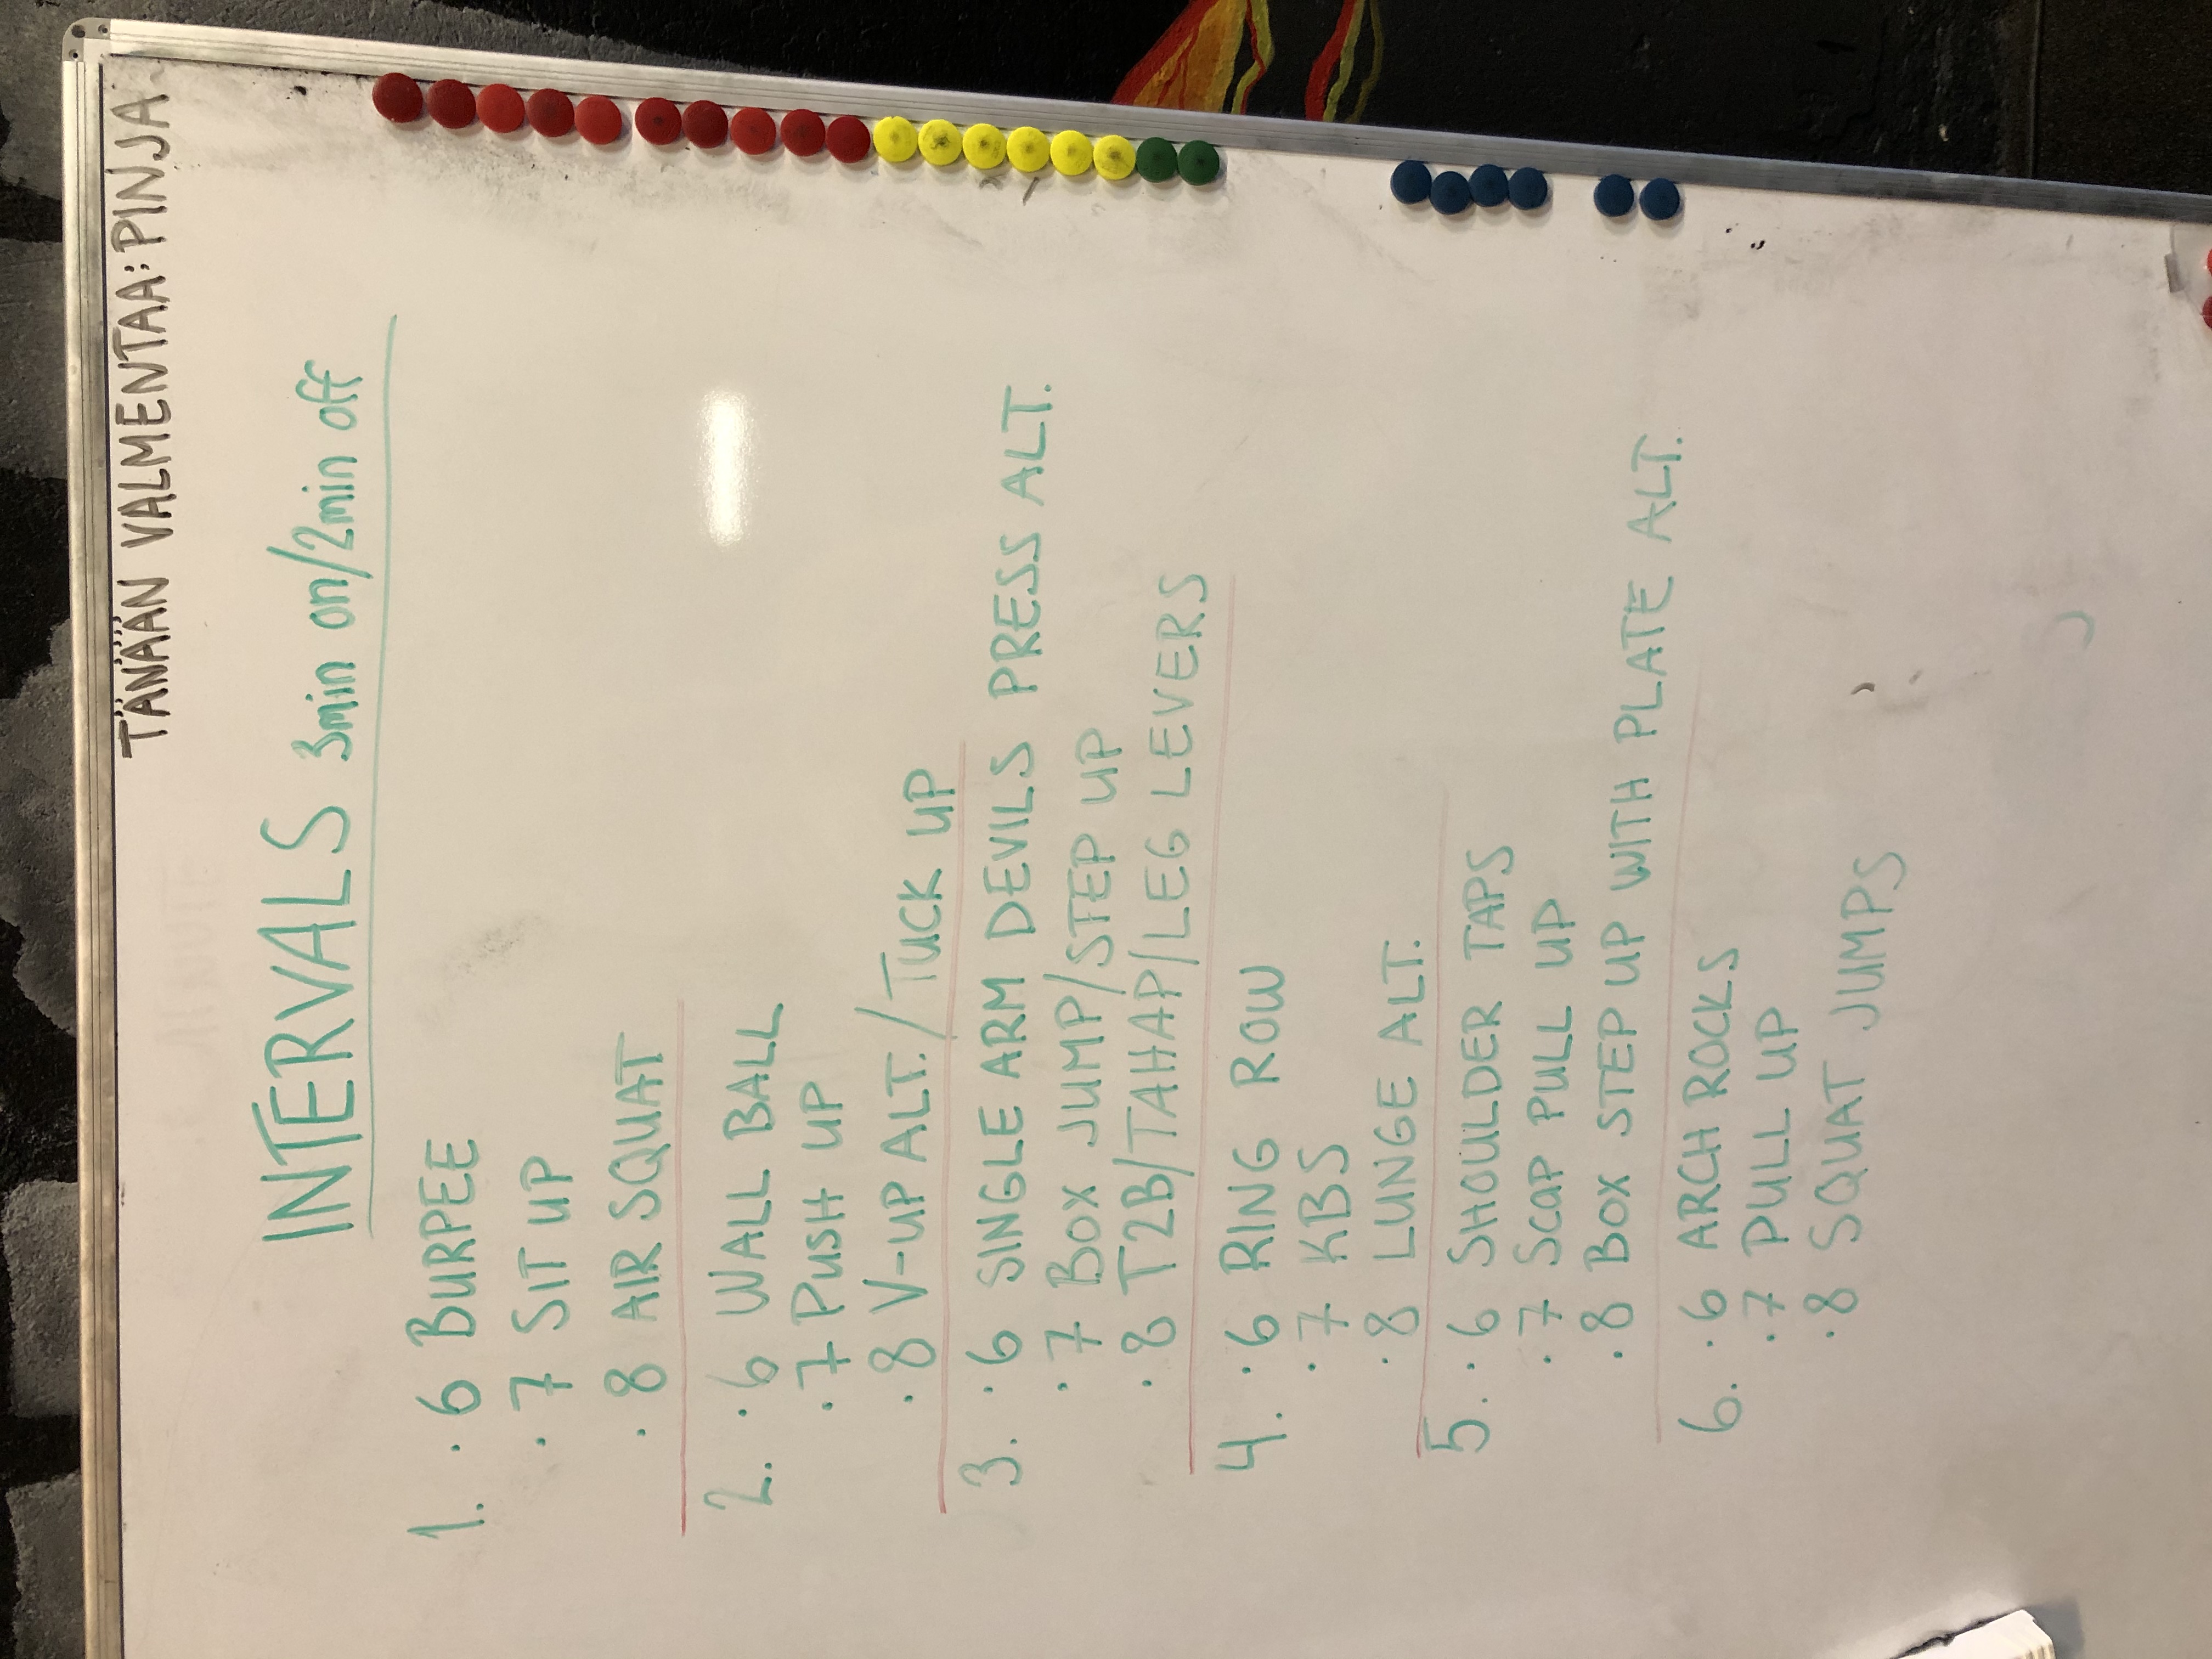 TÄNÄÄN VALMENTAA: PINJA
INTERVALS 3min on/2min off
1. · 6 BURPEE
· 7 SIT UP
· 8 AIR SQUAT
2. · 6 WALL BALL
· 7 PUSH UP
· 8 V-UP ALT./TUCK UP
3. · 6 SINGLE ARM DEVILS PRESS ALT.
· 7 BOX JUMP/STEP UP
· 8 T2B/TAHAP/LEG LEVERS
4. · 6 RING ROW
· 7 KBS
· 8 LUNGE ALT.
5. · 6 SHOULDER TAPS
· 7 SCAP PULL UP
· 8 BOX STEP UP WITH PLATE ALT.
6. · 6 ARCH ROCKS
· 7 PULL UP
· 8 SQUAT JUMPS